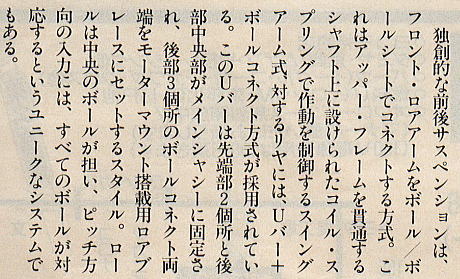 独創的な前後サスペンションは、
フロント・ロアアームをボール／ボ
ールシートでコネクトする方式。こ
れはアッパー・フレームを貫通する
シャフト上に設けられたコイル・ス
プリングで作動を制御するスイング
アーム式、対するリヤには、Uバー＋
ボールコネクト方式が採用されてい
る。このUバーは先端部2個所と後
部中央部がメインシャシーに固定さ
れ、後部3個所のボールコネクト両
端をモーターマウント搭載用ロアブ
レースにセットするスタイル。ロー
ルは中央のボールが担い、ピッチ方
向の入力には、すべてのボールが対
応するというユニークなシステムで
もある。